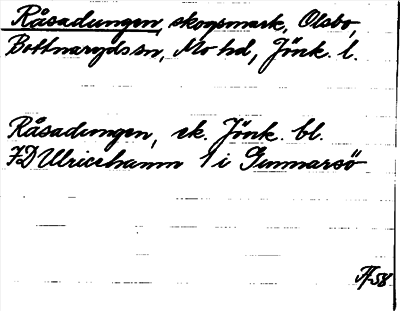 Råsadungen, skogsmark, Olsbo,
Bottnarydssn, Mo hd, Jönk. l.
Råsadungen, ek. Jönk. bl.
7D Ulricehamn 1 i Gunnarsö